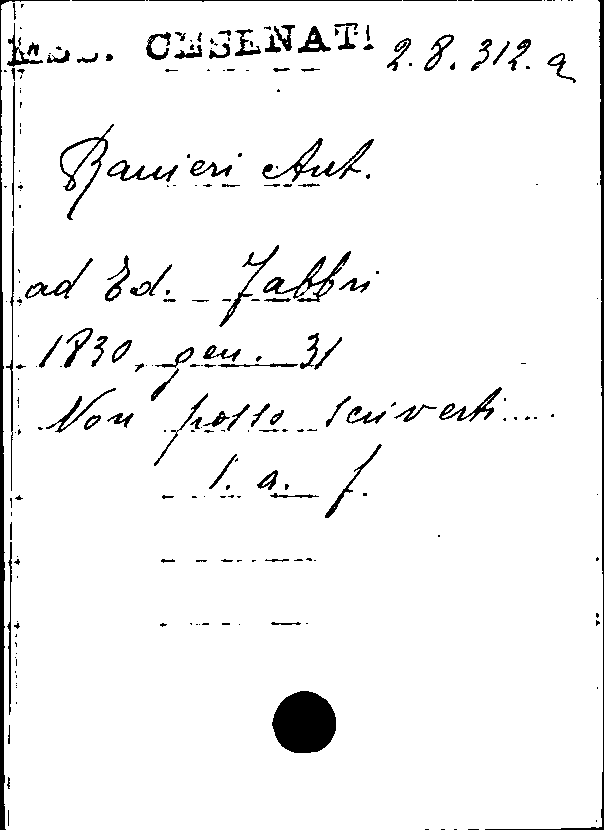 MSS. CESENATI 2.8.312.a
Ranieri Ant.
ad Ed. Fabbri
1830, gen. 31
Non posso scriverti.....
l. a. f.